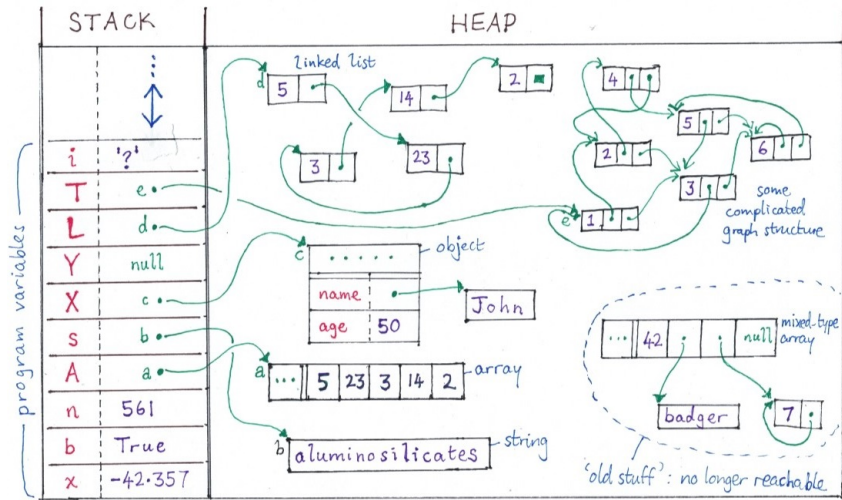 STACK
HEAP
program variables
i '?'
T e
L d
Y null
X c
s b
A a
n 561
b True
x -42.357
linked list
d 5
14
2
3
23
4
5
6
2
3
e 1
some
complicated
graph structure
c
object
name
age 50
John
a ... 5 23 3 14 2
array
b aluminosilicates
string
... 42 null
mixed-type
array
badger
7
'old stuff': no longer reachable